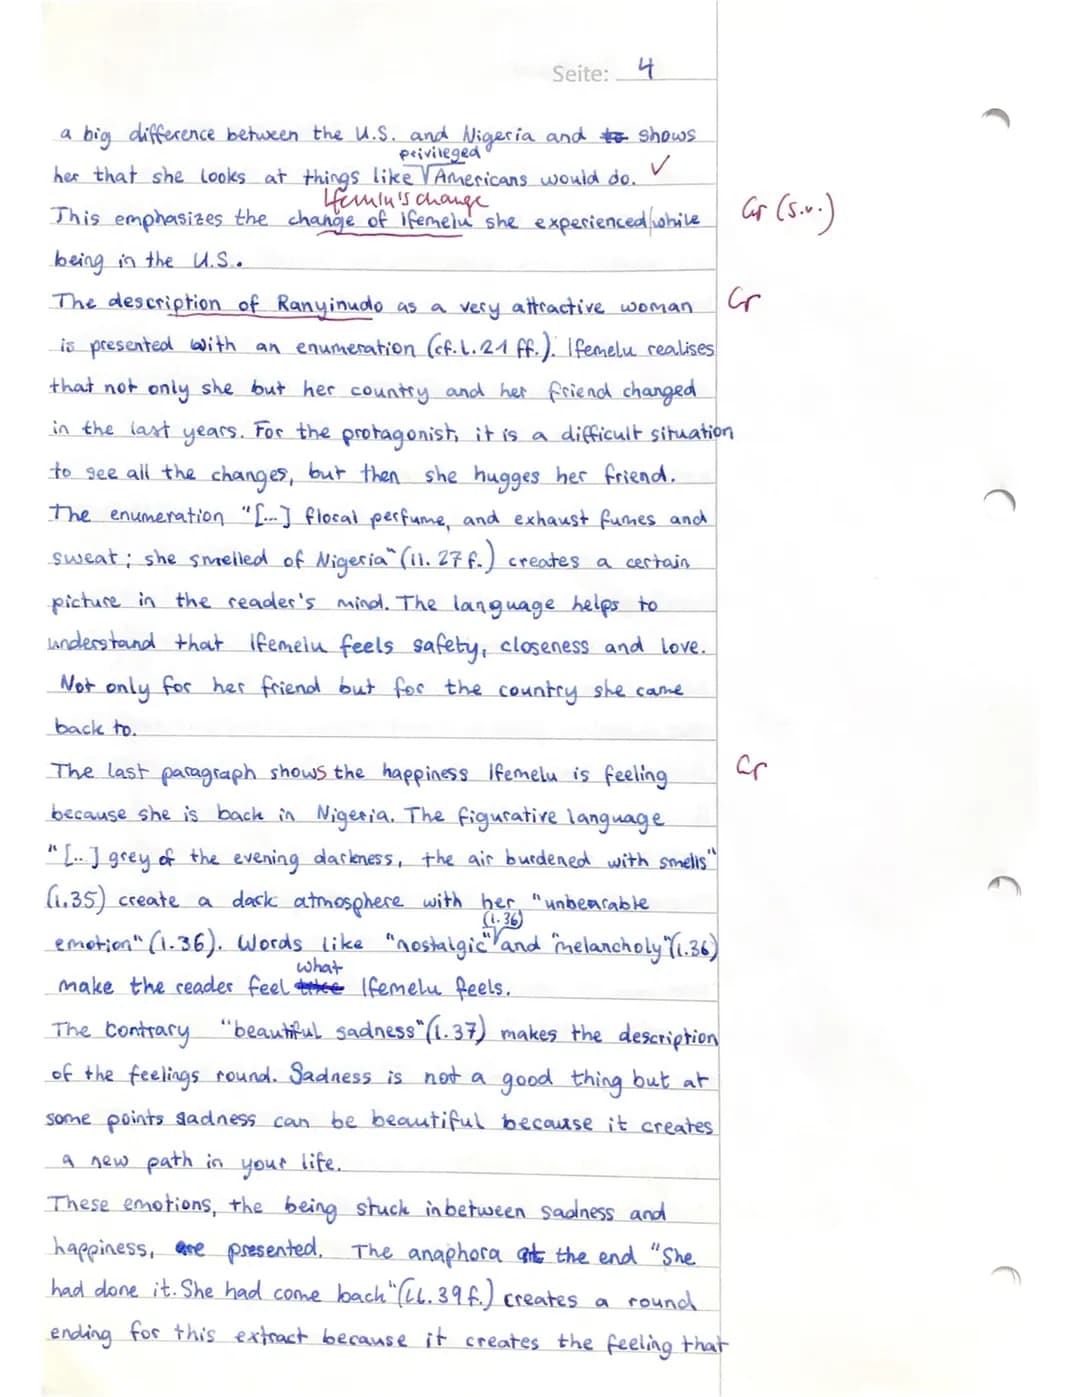 Seite: 4
a big difference between the U.S. and Nigeria and to shows
privileged
her that she looks at things like √Americans would do. ✓
Ifemelu's change
This emphasizes the change of Ifemelu she experienced while Gr (s.v.)
being in the U.S.
The description of Ranyinudo as a very attractive woman Gr
is presented with an enumeration (cf. l. 21 ff.). Ifemelu realises
that not only she but her country and her friend changed
in the last years. For the protagonist, it is a difficult situation
to see all the changes, but then she hugges her friend.
The enumeration "[...] floral perfume, and exhaust fumes and
sweat; she smelled of Nigeria" (ll. 27 f.) creates a certain
picture in the reader's mind. The language helps to
understand that Ifemelu feels safety, closeness and love.
Not only for her friend but for the country she came
back to.
The last paragraph shows the happiness Ifemelu is feeling Gr
because she is back in Nigeria. The figurative language
"[...] grey of the evening darkness, the air burdened with smells"
(l. 35) create a dark atmosphere with her "unbearable
(l. 36)
emotion" (l. 36). Words like "nostalgic"√and "melancholy" (l. 36)
what
make the reader feel Ifemelu feels.
The contrary "beautiful sadness" (l. 37) makes the description
of the feelings round. Sadness is not a good thing but at
some points sadness can be beautiful because it creates
a new path in your life.
These emotions, the being stuck inbetween sadness and
happiness, are presented. The anaphora at the end "She
had done it. She had come back" (ll. 39 f.) creates a round
ending for this extract because it creates the feeling that